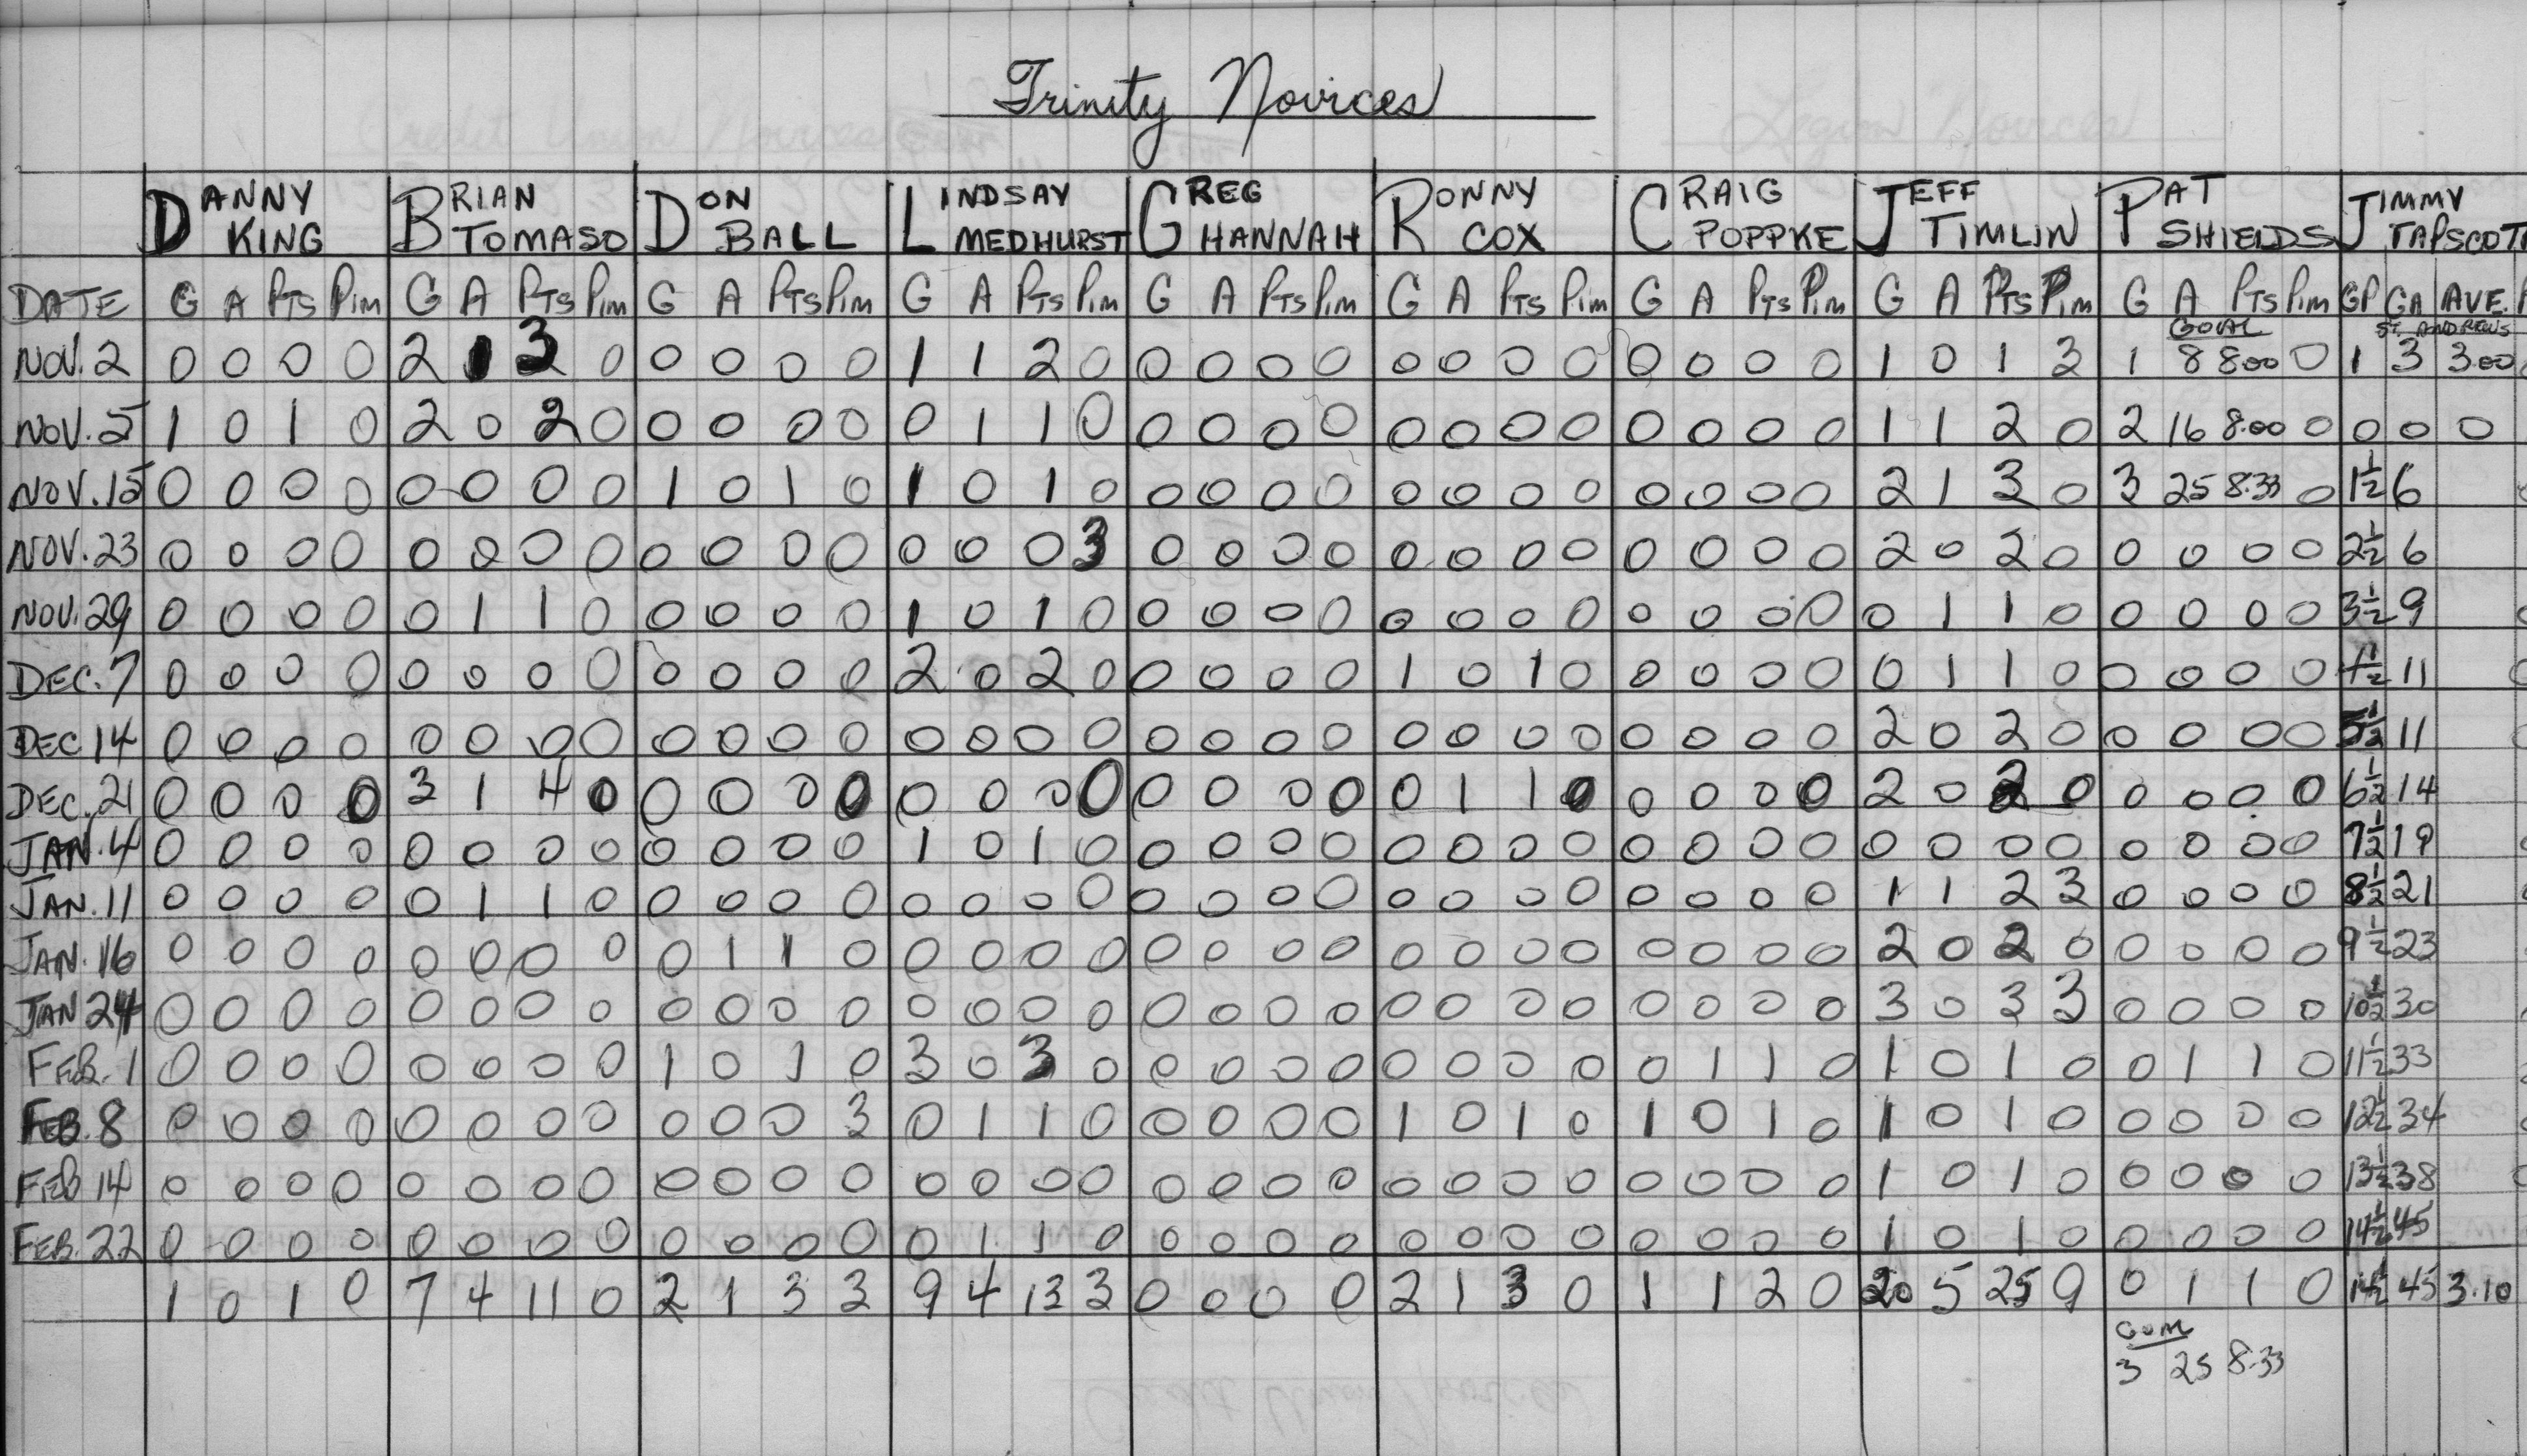 Trinity Novices
DANNY KING BRIAN TOMASO DON BALL LINDSAY MEDHURST GREG HANNAH RONNY COX CRAIG POPPKE JEFF TIMLIN PAT SHIELDS JIMMY TAPSCOT
DATE G A PTS PIM G A PTS PIM G A PTS PIM G A PTS PIM G A PTS PIM G A PTS PIM G A PTS PIM G A PTS PIM G A PTS PIM GP GA AVE.
GOAL ST. ANDREWS
NOV. 2 0 0 0 0 2 1 3 0 0 0 0 0 1 1 2 0 0 0 0 0 0 0 0 0 0 0 0 0 1 0 1 3 1 8 8.00 0 1 3 3.00
NOV. 5 1 0 1 0 2 0 2 0 0 0 0 0 0 1 1 0 0 0 0 0 0 0 0 0 0 0 0 0 1 1 2 0 2 16 8.00 0 0 0 0
NOV. 15 0 0 0 0 0 0 0 0 1 0 1 0 1 0 1 0 0 0 0 0 0 0 0 0 0 0 0 0 2 1 3 0 3 25 8.33 0 1½ 6
NOV. 23 0 0 0 0 0 0 0 0 0 0 0 0 0 0 0 3 0 0 0 0 0 0 0 0 0 0 0 0 2 0 2 0 0 0 0 0 2½ 6
NOV. 29 0 0 0 0 0 1 1 0 0 0 0 0 1 0 1 0 0 0 0 0 0 0 0 0 0 0 0 0 0 1 1 0 0 0 0 0 3½ 9
DEC. 7 0 0 0 0 0 0 0 0 0 0 0 0 2 0 2 0 0 0 0 0 1 0 1 0 0 0 0 0 0 1 1 0 0 0 0 0 4½ 11
DEC 14 0 0 0 0 0 0 0 0 0 0 0 0 0 0 0 0 0 0 0 0 0 0 0 0 0 0 0 0 2 0 2 0 0 0 0 0 5½ 11
DEC. 21 0 0 0 0 3 1 4 0 0 0 0 0 0 0 0 0 0 0 0 0 0 1 1 0 0 0 0 0 2 0 2 0 0 0 0 0 6½ 14
JAN. 4 0 0 0 0 0 0 0 0 0 0 0 0 1 0 1 0 0 0 0 0 0 0 0 0 0 0 0 0 0 0 0 0 0 0 0 0 7½ 19
JAN. 11 0 0 0 0 0 1 1 0 0 0 0 0 0 0 0 0 0 0 0 0 0 0 0 0 0 0 0 0 1 1 2 3 0 0 0 0 8½ 21
JAN. 16 0 0 0 0 0 0 0 0 0 1 1 0 0 0 0 0 0 0 0 0 0 0 0 0 0 0 0 0 2 0 2 0 0 0 0 0 9½ 23
JAN 24 0 0 0 0 0 0 0 0 0 0 0 0 0 0 0 0 0 0 0 0 0 0 0 0 0 0 0 0 3 0 3 3 0 0 0 0 10½ 30
FEB. 1 0 0 0 0 0 0 0 0 1 0 1 0 3 0 3 0 0 0 0 0 0 0 0 0 0 1 1 0 1 0 1 0 0 1 1 0 11½ 33
FEB. 8 0 0 0 0 0 0 0 0 0 0 0 3 0 1 1 0 0 0 0 0 1 0 1 0 1 0 1 0 1 0 1 0 0 0 0 0 12½ 34
FEB 14 0 0 0 0 0 0 0 0 0 0 0 0 0 0 0 0 0 0 0 0 0 0 0 0 0 0 0 0 1 0 1 0 0 0 0 0 13½ 38
FEB. 22 0 0 0 0 0 0 0 0 0 0 0 0 0 1 1 0 0 0 0 0 0 0 0 0 0 0 0 0 1 0 1 0 0 0 0 0 14½ 45
1 0 1 0 7 4 11 0 2 1 3 3 9 4 13 3 0 0 0 0 2 1 3 0 1 1 2 0 20 5 25 9 0 1 1 0 14½ 45 3.10
3 25 8.33